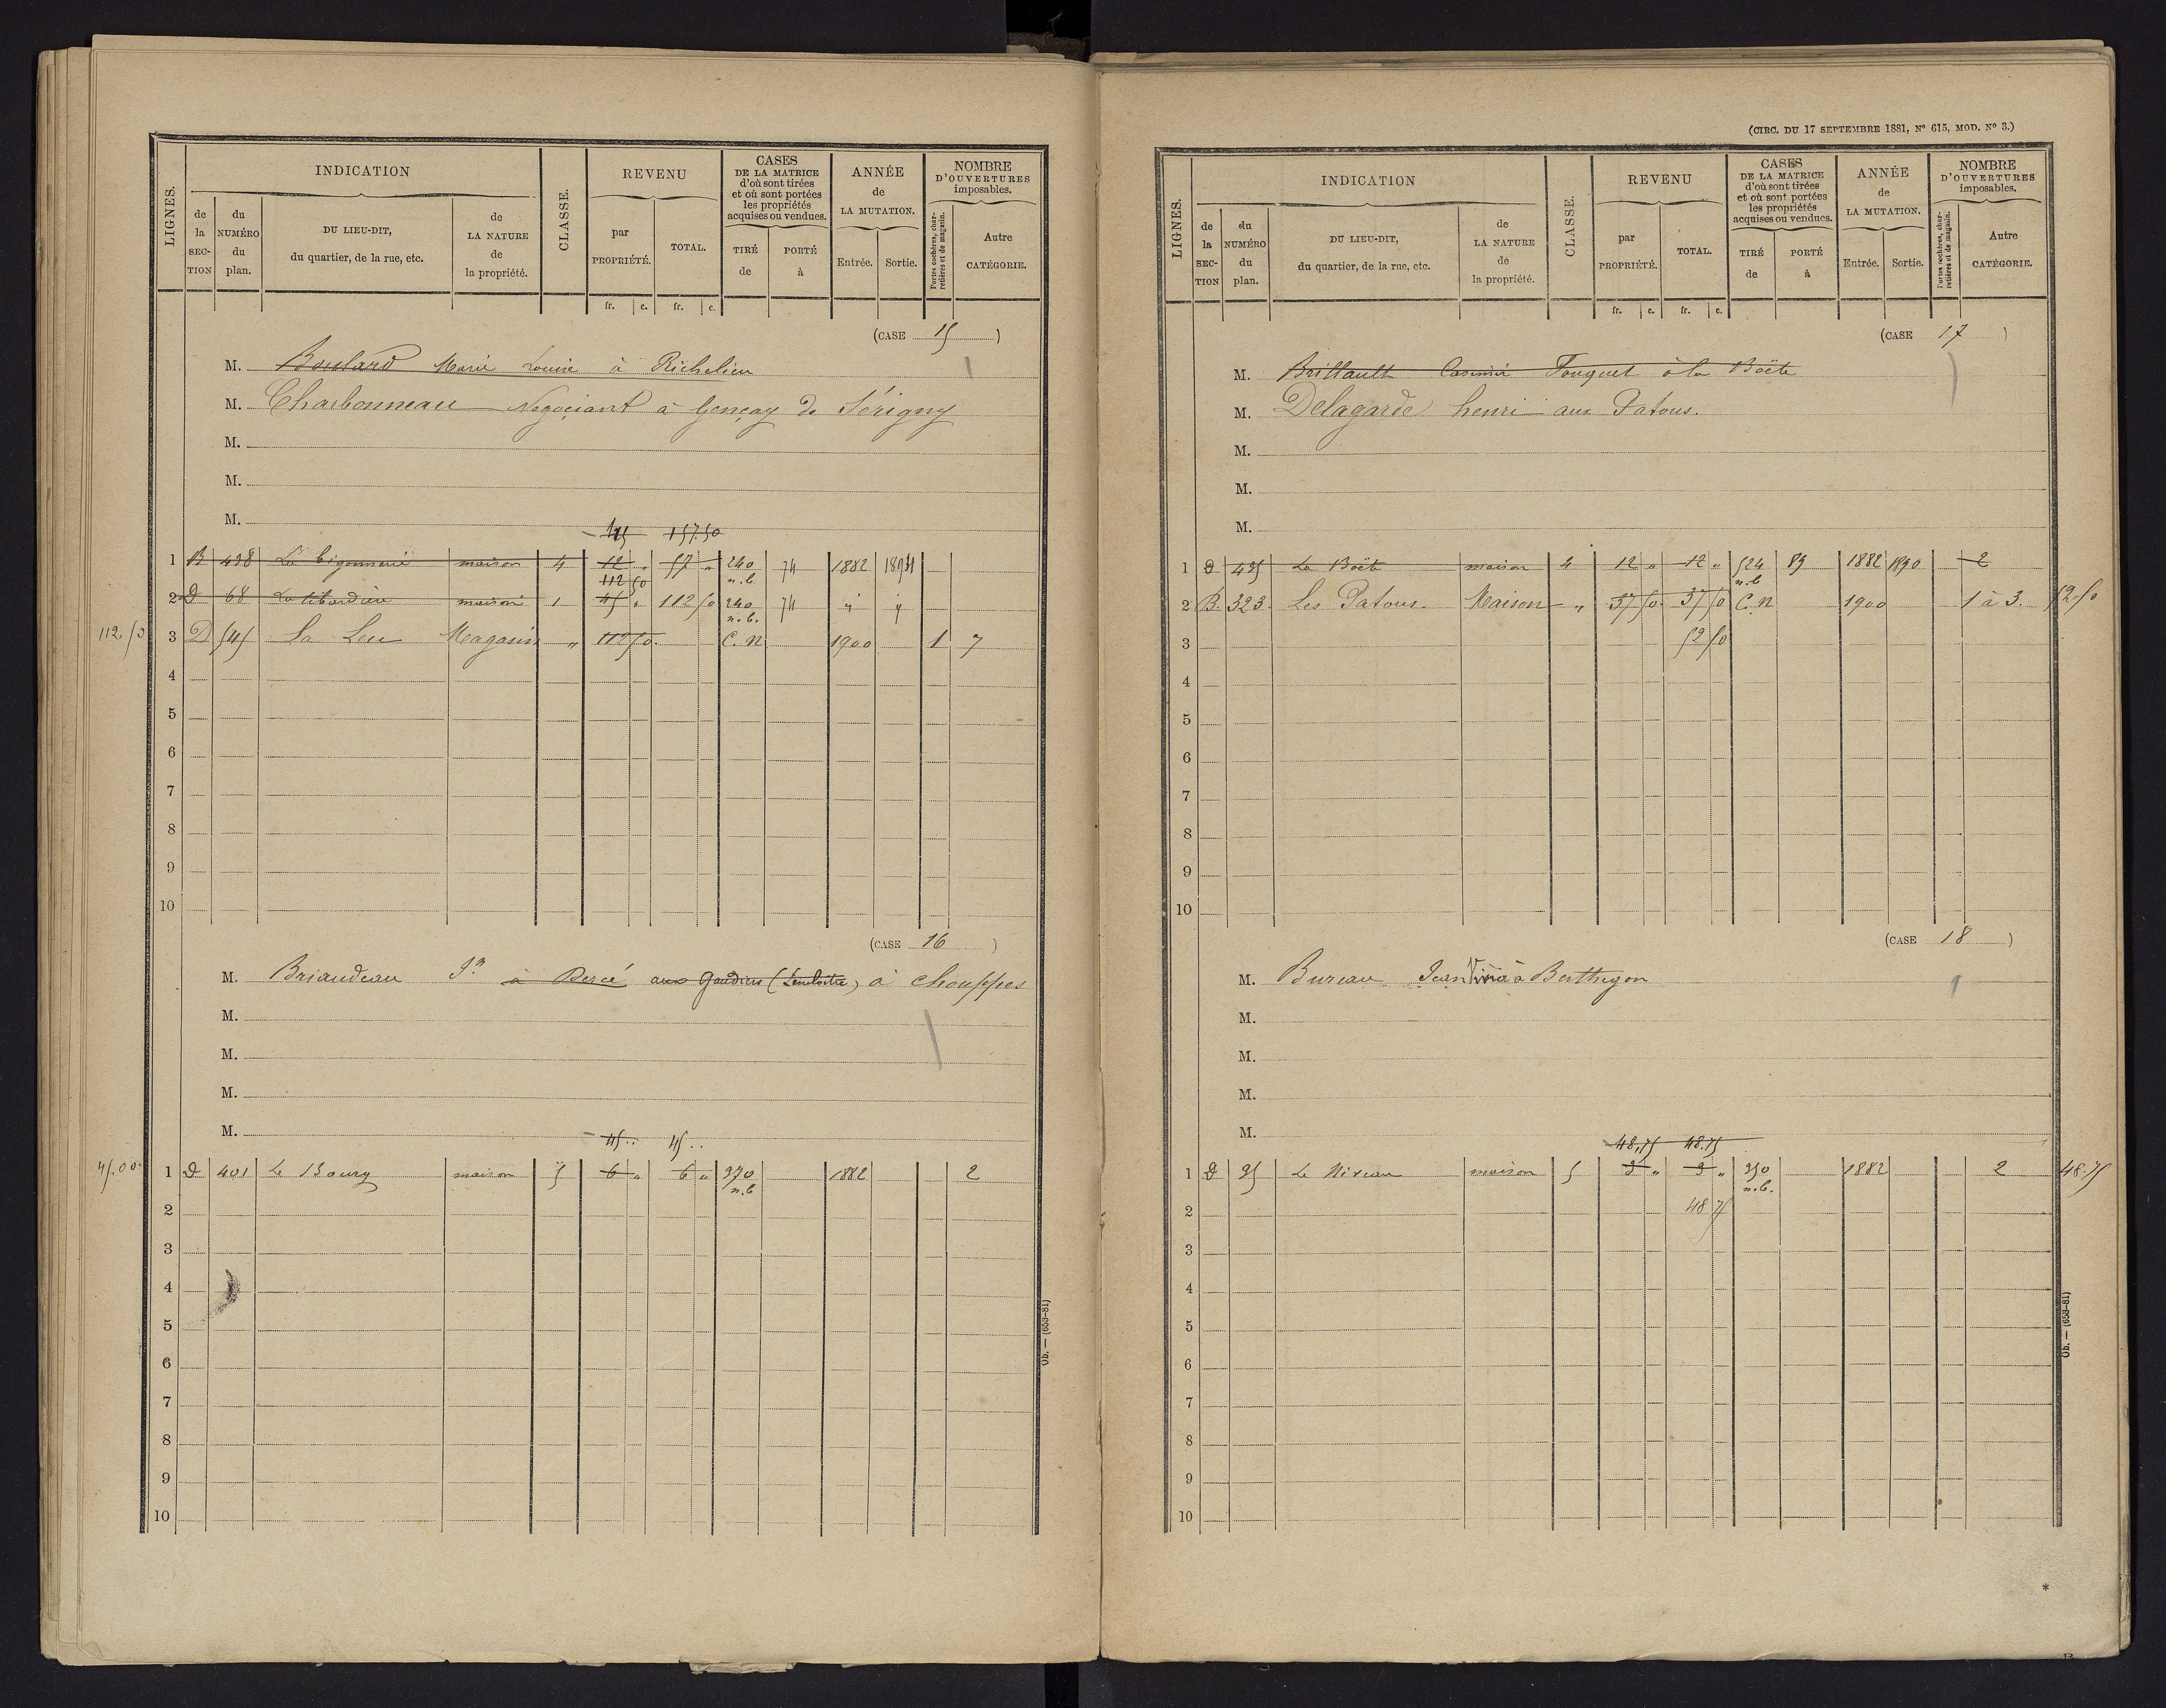 LIGNES.
INDICATION
de la SECTION
du NUMÉRO du plan.
DU LIEU-DIT, du quartier, de la rue, etc.
de LA NATURE de la propriété.
CLASSE.
REVENU
par PROPRIÉTÉ.
TOTAL.
CASES DE LA MATRICE d'où sont tirées et où sont portées les propriétés acquises ou vendues.
TIRÉ de
PORTÉ à
ANNÉE de LA MUTATION.
Entrée.
Sortie.
NOMBRE D'OUVERTURES imposables.
Portes cochères, charretières et de magasin.
Autre CATÉGORIE.
fr. c. fr. c.
(CASE 15)
M. Boulard Marie Louise à Richelieu
M. Charbonneau Négociant à Gençay de Sérigny
M.
M.
M.
157.50
1 B 438 La bigonnerie maison 4 12 " 57 " 240 n.b. 74 1882 1894
112 50
2 D 68 maison 1 45 " 112 50 240 n.b. 74 " "
112.50 3 D 545 La Leu Magasin " 112 50 C.N 1900 1 7
4
5
6
7
8
9
10
(CASE 16)
M. Briandeau Jn à Dercé aux Gaudiers (Lencloitre) à Chouppes
M.
M.
M.
M.
45.. 45..
45.00 1 D 401 Le Bourg maison 5 6 " 6 " 370 n.b 1882 2
2
3
4
5
6
7
8
9
10
Ob. — (653-81)
(CIRC. DU 17 SEPTEMBRE 1881, Nº 615, MOD. Nº 3.)
LIGNES.
INDICATION
de la SECTION
du NUMÉRO du plan.
DU LIEU-DIT, du quartier, de la rue, etc.
de LA NATURE de la propriété.
CLASSE.
REVENU
par PROPRIÉTÉ.
TOTAL.
CASES DE LA MATRICE d'où sont tirées et où sont portées les propriétés acquises ou vendues.
TIRÉ de
PORTÉ à
ANNÉE de LA MUTATION.
Entrée.
Sortie.
NOMBRE D'OUVERTURES imposables.
Portes cochères, charretières et de magasin.
Autre CATÉGORIE.
fr. c. fr. c.
(CASE 17)
M. Brillault Casimir Fouquet à la Boëte
M. Delagarde henri aux Patous.
M.
M.
M.
1 D 435 La Boëte maison 4 12 " 12 " 524 n.b 89 1882 1890 2
2 B. 323. Les Patous. Maison " 37 50 37 50 C.N 1900 1 à 3. 52 50
3 52 50
4
5
6
7
8
9
10
(CASE 18)
M. Bureau Jean à Berthegon
M.
M.
M.
M.
48,75 48.75
1 D 35 Le Niveau maison 5 9 " 9 " 350 n.b. 1882 2 48.75
2 48 75
3
4
5
6
7
8
9
10
Ob. — (653-81)
*